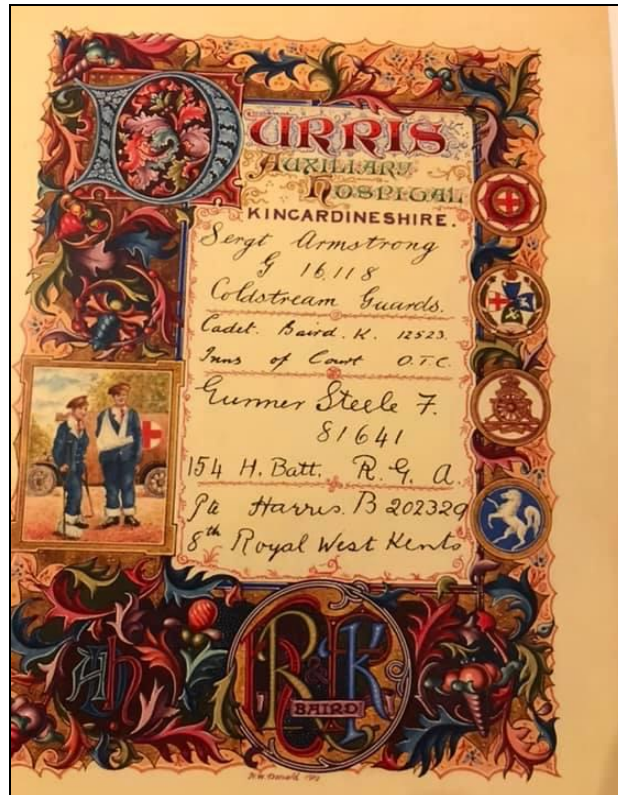 DURRIS
AUXILIARY
HOSPITAL
KINCARDINESHIRE.
Sergt Armstrong
G 16.118
Coldstream Guards.
Cadet. Baird. K. 12523.
Inns of Court O.T.C.
Gunner Steele F.
81641
154 H. Batt. R. G. A.
Pte Harris. B 202329
8th Royal West Kents
R & K
BAIRD